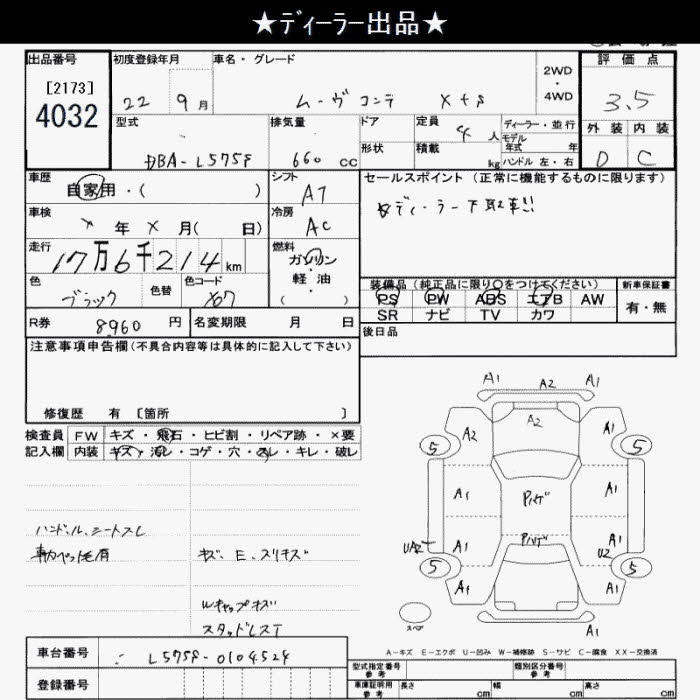 ★ディーラー出品★
出品番号
[2173]
4032
初度登録年月
22 9 月
車名・グレード
ムーヴ コンテ X+S
2WD
・
4WD
評価点
3.5
外装 内装
D C
型式
DBA-L575S
排気量
660 CC
ドア
形状
定員
4 人
積載
kg
ディーラー・並行
モデル
年式 年
ハンドル 左・右
車歴
自家用・( )
シフト
AT
セールスポイント(正常に機能するものに限ります)
☆ディーラー下取車!!
車検
× 年 × 月( 日)
冷房
AC
走行
17万6千214 km
燃料
ガソリン
・
軽油
( )
色
ブラック
色替
色コード
X07
装備品(純正品に限り○をつけてください)
PS PW ABS エアB AW
SR ナビ TV カワ
新車保証書
有・無
R券
8960 円
名変期限 月 日
後日品
注意事項申告欄(不具合内容等は具体的に記入して下さい)
修復歴 有 〔箇所 〕
検査員
記入欄
FW キズ・飛石・ヒビ割・リペア跡・×要
内装 キズ・汚レ・コゲ・穴・スレ・キレ・破レ
ハンドル、シートスレ
車内ペット毛有
キズ、E、スリキズ
Wキャップキズ
スタッドレスT
A1 A2 A1
A2 A2 A1
5 5
A1 Pハゲ A1
UA2 A1 Pハゲ A1 U2
5 5
A1 A1
スペア
A1
A-キズ E-エクボ U-凹み W-補修跡 S-サビ C-腐食 XX-交換済
車台番号
L575S-0104524
登録番号
型式指定番号
参考
類別区分番号
参考
車庫証明用
参考
長さ cm
幅 cm
高さ cm